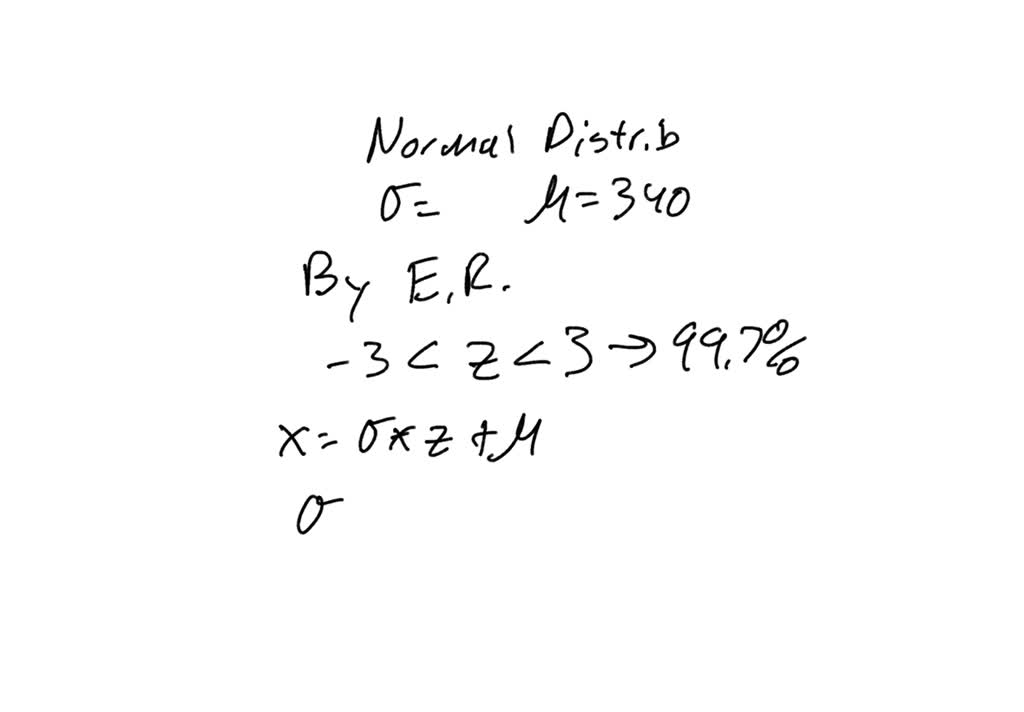 Normal Distrib
σ= μ=340
By E.R.
-3<z<3→99.7%
x=σ*z+μ
σ